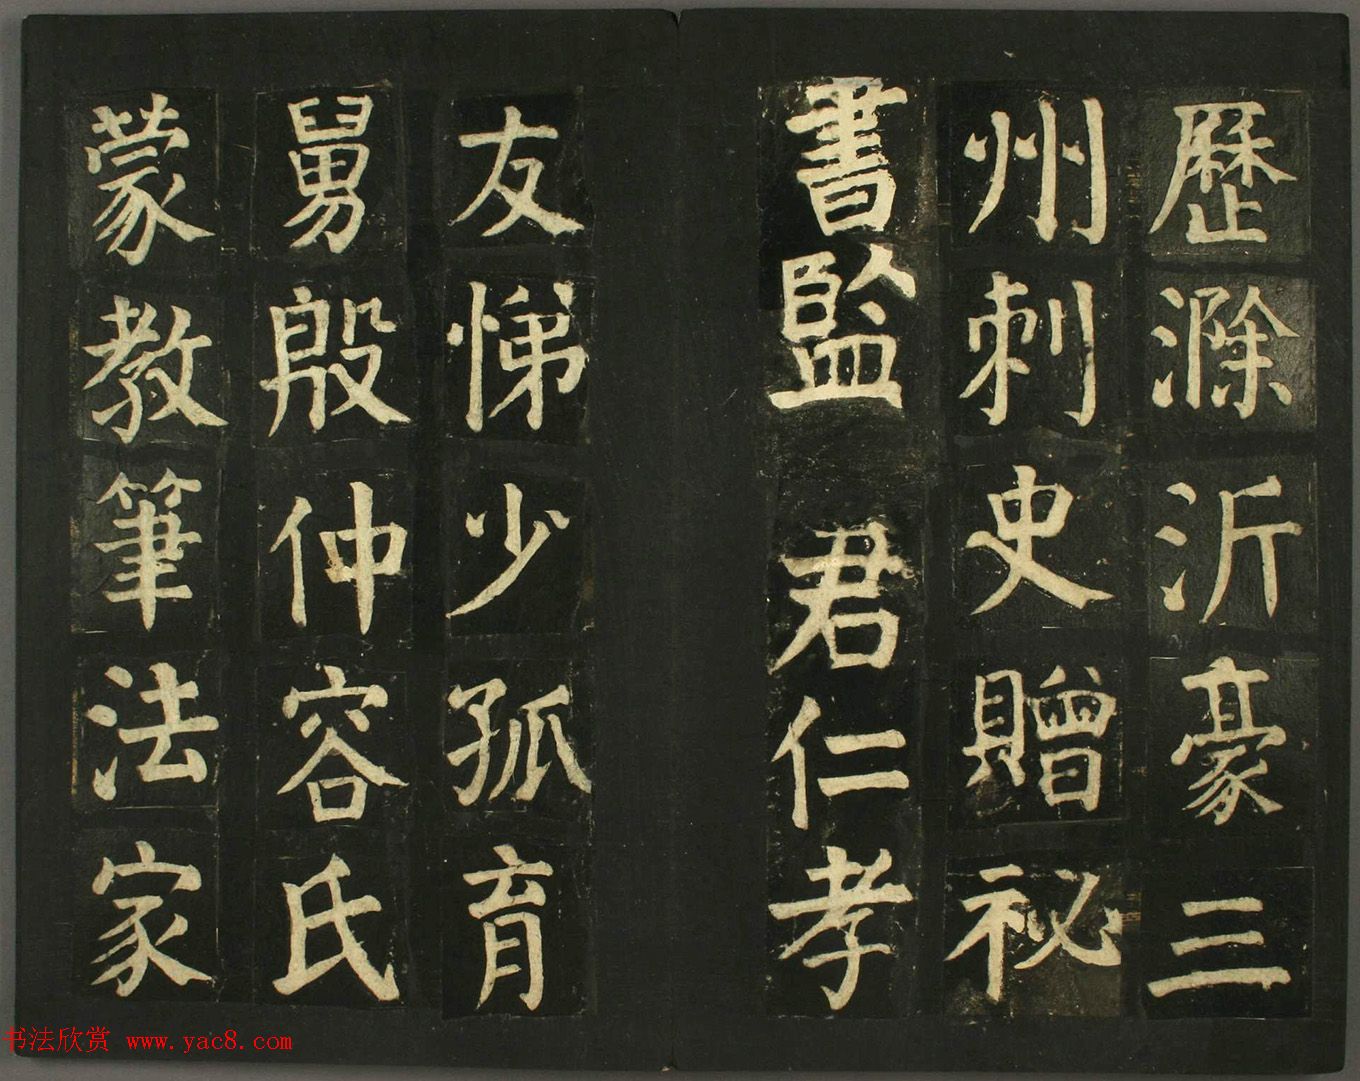 歷滁沂豪三
州刺史贈祕
書監君仁孝
友悌少孤育
舅殷仲容氏
蒙教筆法家
书法欣赏 www.yac8.com